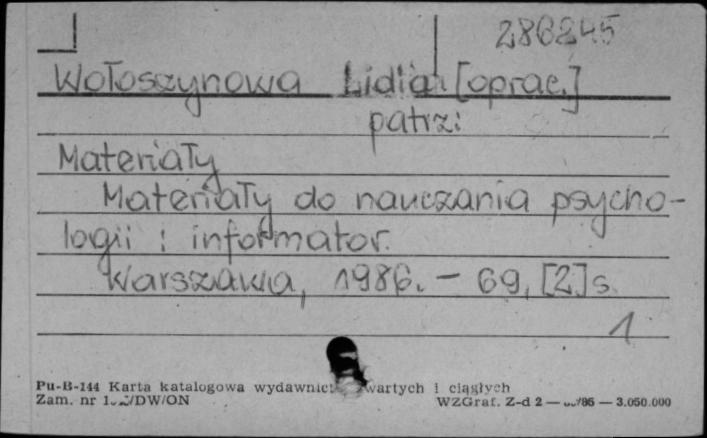 286245
Wołoszynowa Lidia [oprac.]
patrz:
Materiały
Materiały do nauczania psycho-
logii : informator.
Warszawa, 1986. – 69, [2] s.
1
Pu-B-144 Karta katalogowa wydawnict wartych i ciągłych
Zam. nr /DW/ON WZGraf. Z-d 2 — /86 — 3.050.000